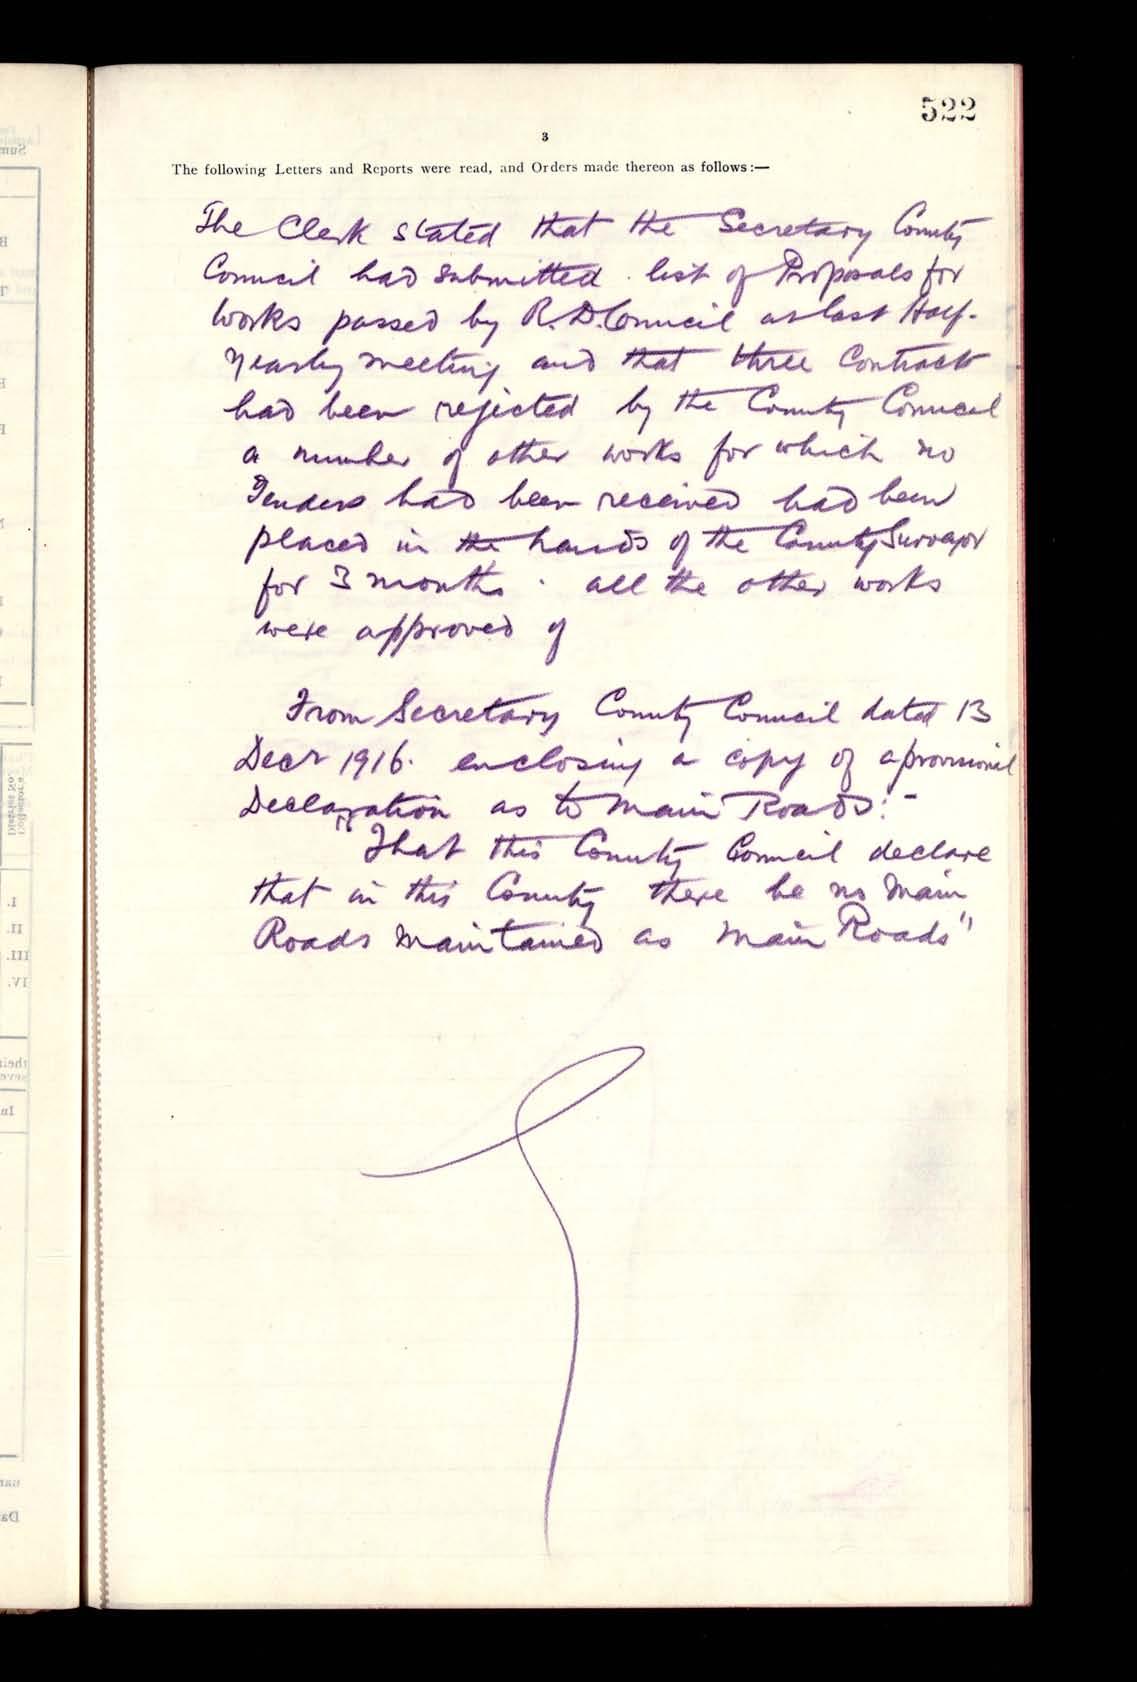 522
3
The following Letters and Reports were read, and Orders made thereon as follows:—
The Clerk stated that the Secretary County
Council had submitted list of Proposals for
works passed by R.D. Council at last Half-
Yearly meeting and that three Contracts
had been rejected by the County Council
a number of other works for which no
Tenders had been received had been
placed in the hands of the County Surveyor
for 3 months. all the other works
were approved of
From Secretary County Council dated 13
Decr 1916. enclosing a copy of a provisional
Declaration as to Main Roads:-
"That this County Council declare
that in this County there be no Main
Roads maintained as Main Roads"